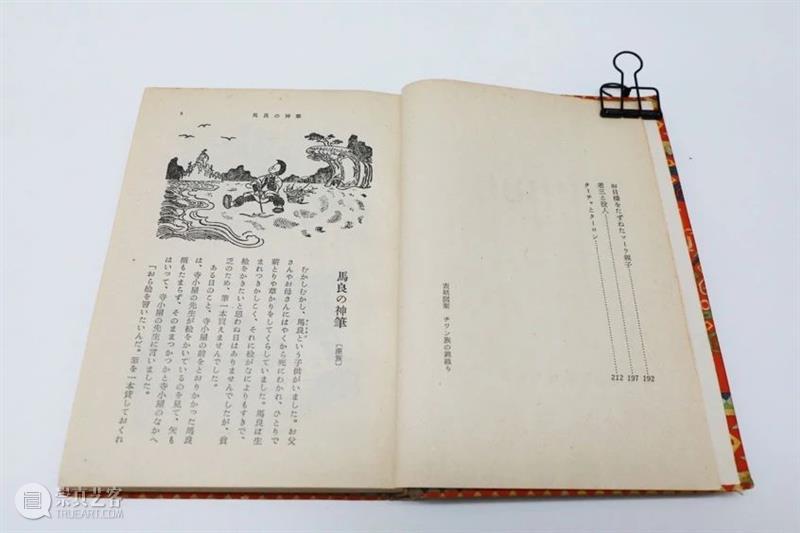 お日様をたずねたマーラ親子 192
老三と役人 197
ターチャとターロン 212
表紙図案 チワン族の錦織り
馬良の神筆
馬良の神筆
〔漢族〕
むかしむかし、馬良という子供がいました。お父
さんやお母さんにはやくから死にわかれ、ひとりで
薪とりや草かりをしてくらしていました。馬良は生
まれつきかしこく、それに絵がなによりもすきで、
絵をかきたいと思わぬ日はありませんでしたが、貧
乏のため、筆一本買えませんでした。
ある日のこと、寺小屋の前をとおりかかった馬良
は、寺小屋の先生が絵をかいているのを見て、矢も
楯もたまらず、そのままつかつかと寺小屋のなかへ
はいって、寺小屋の先生に言いました。
「おら絵を習いたいんだ。筆を一本貸しておくれ
崇真艺客
TRUEART.COM